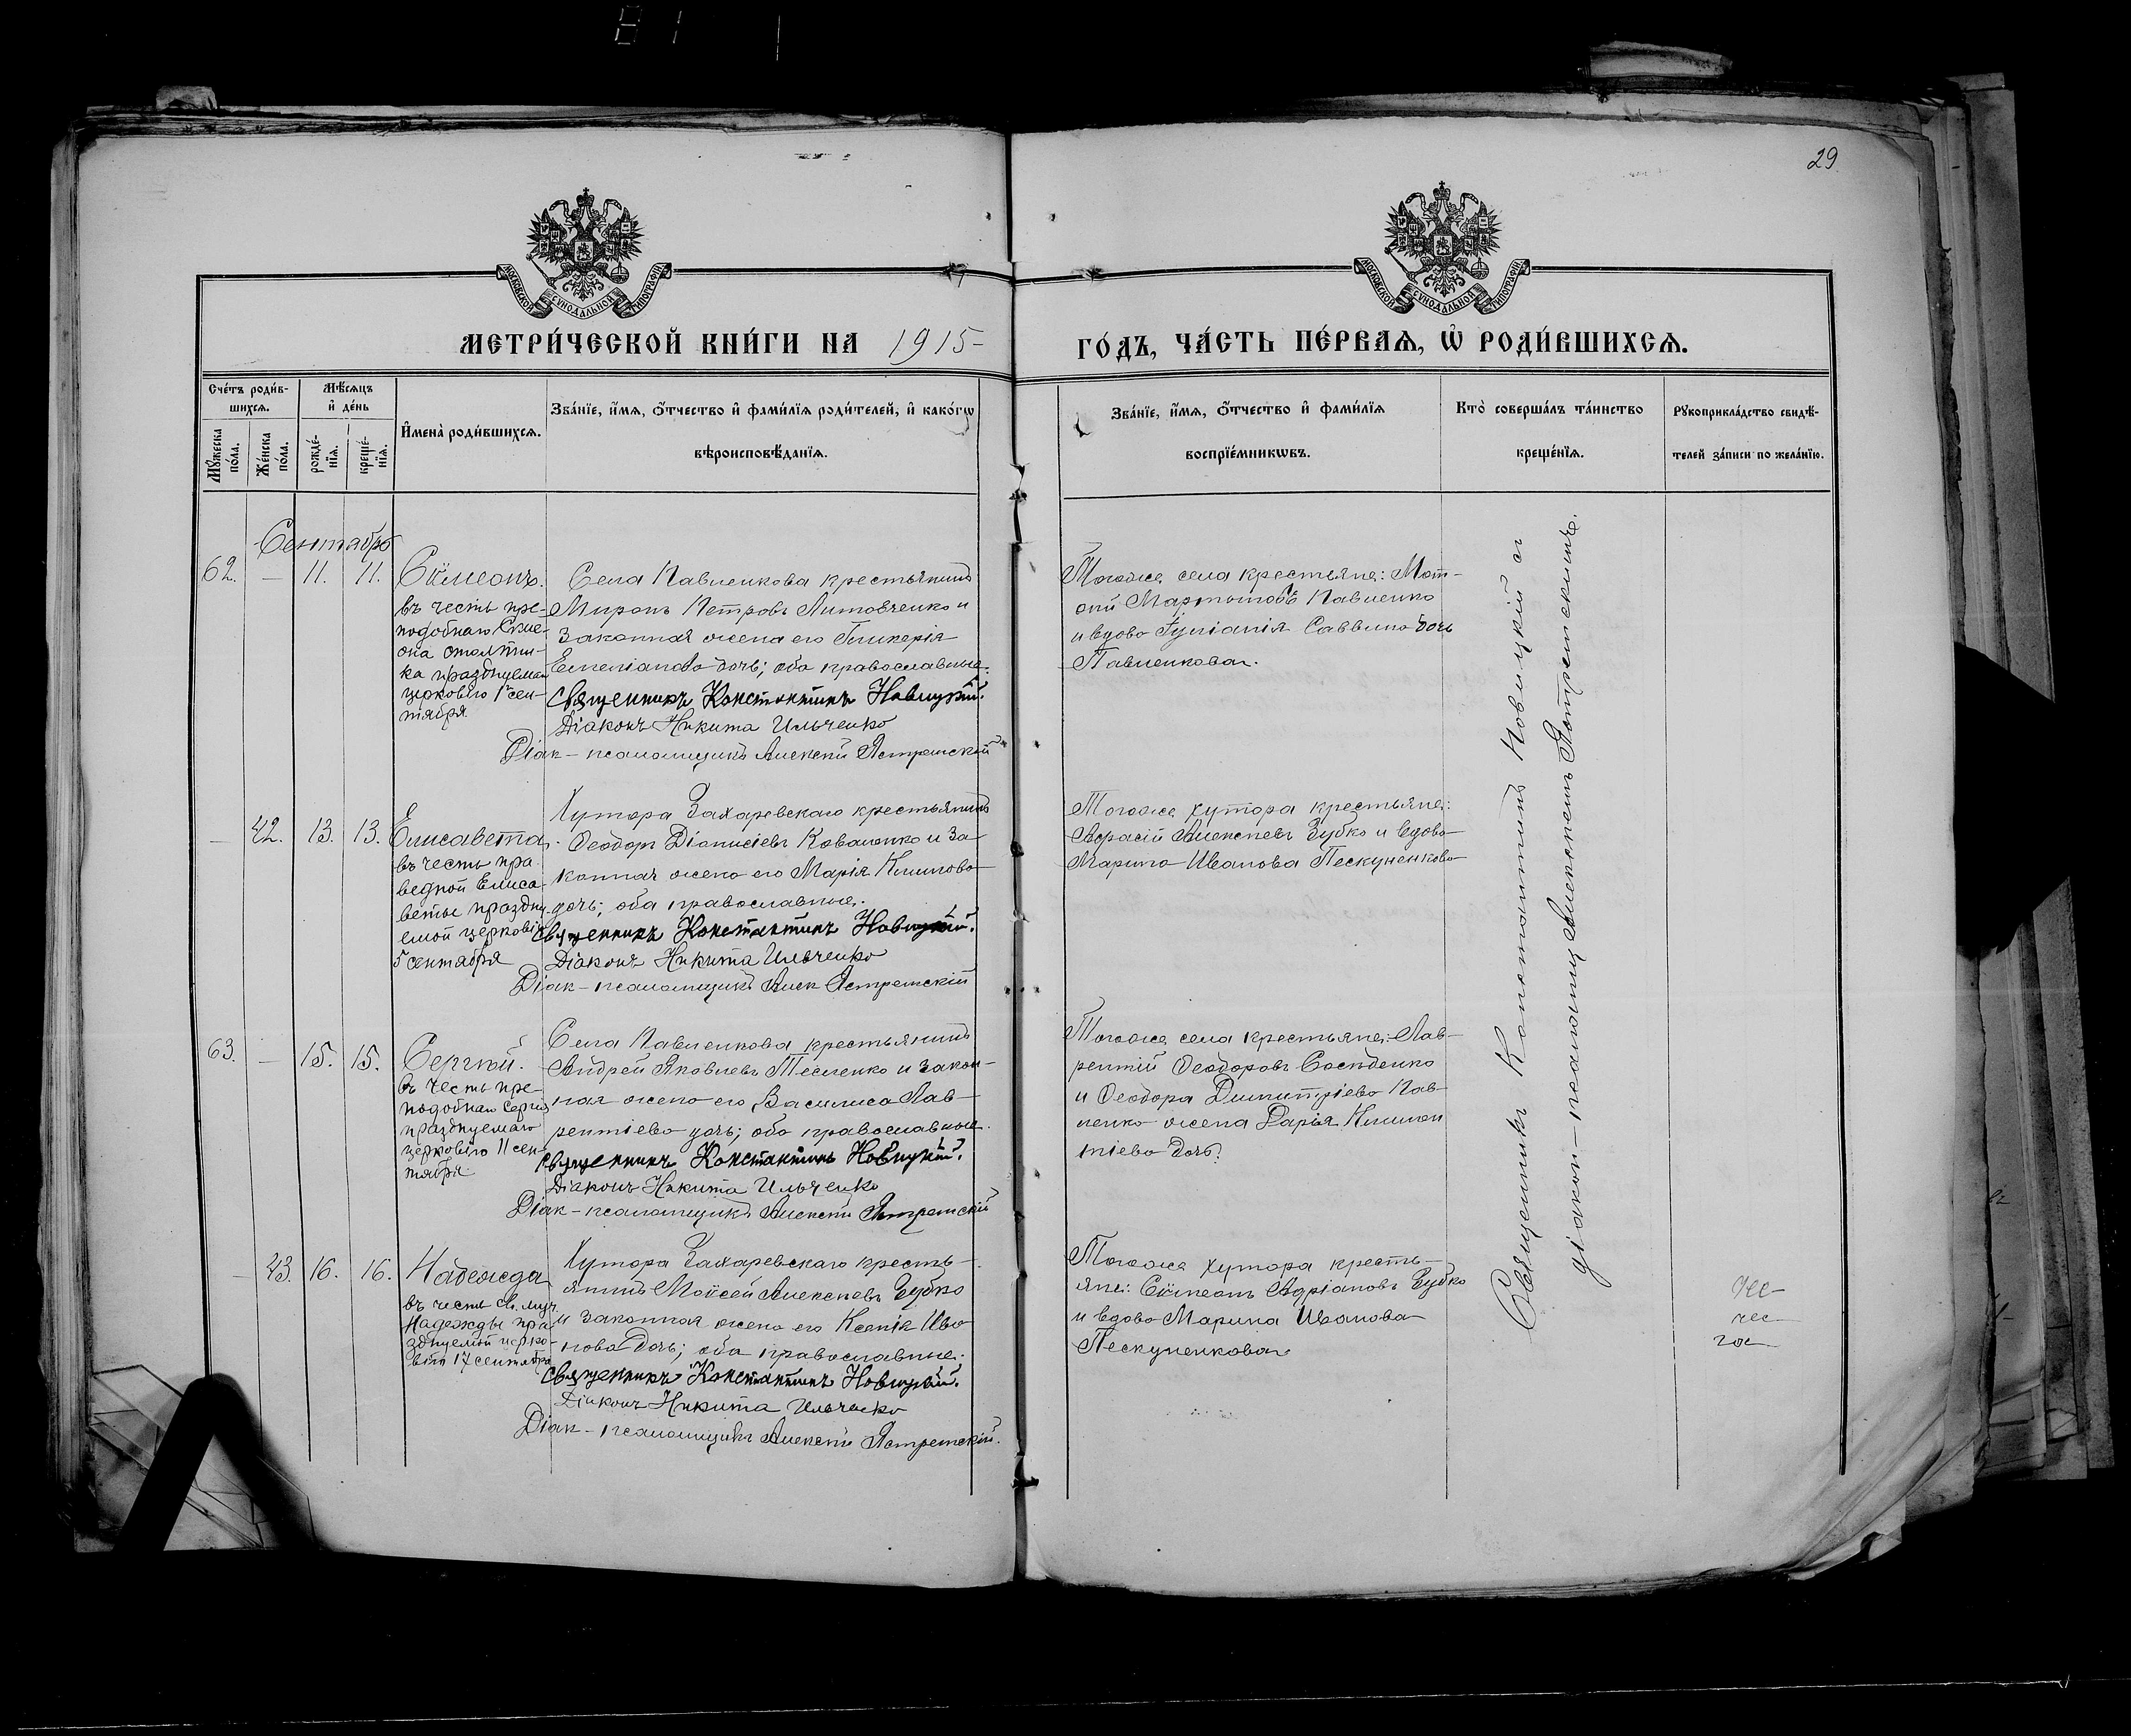 29
МОСКОВСКОЙ СѴНОДАЛЬНОЙ ТИПОГРАФІИ
МОСКОВСКОЙ СѴНОДАЛЬНОЙ ТИПОГРАФІИ
МЕТРИ́ЧЕСКОЙ КНИ́ГИ НА 1915
ГО́ДЪ, ЧА́СТЬ ПЕ́РВАѦ, Ѡ҆ РОДИ́ВШИХСѦ.
Сче́тъ роди́в-
шихсѧ.
Мꙋ́жеска по́ла.
Же́нска по́ла.
Мѣ́сѧцъ
и҆ де́нь
рожде́-
нїѧ.
креще́-
нїѧ.
И҆мена̀ роди́вшихсѧ.
Зва́нїе, и҆́мѧ, ѻ҆́тчество и҆ фами́лїѧ роди́телей, и҆ како́гѡ
вѣроисповѣ́данїѧ.
Зва́нїе, и҆́мѧ, ѻ҆́тчество и҆ фами́лїѧ
воспрїе́мникѡвъ.
Кто̀ соверша́лъ та́инство
креще́нїѧ.
Рꙋкоприкла́дство свидѣ́-
телей за́писи по жела́нїю.
Сентябрь
62. — 11. 11. Сѵмеонъ.
въ честь пре-
подобнаго Сѵме-
она столпни-
ка празднуемаго
церковію 1 сен-
тября.
Села Павленкова крестьянинъ
Миронъ Петровъ Литовченко и
законная жена его Гликерія
Емеліанова дочь; оба православные.
Священникъ Константинъ Новицкій.
Діаконъ Никита Ильченко
Діак-псаломщикъ Алексѣй Ястремскій
Тогоже села крестьяне: Мат-
ѳей Мартыновъ Павленко
и вдова Іуліанія Саввина дочь
Павленкова.
— 42. 13. 13. Елисавета,
въ честь пра-
ведной Елиса-
веты праздну-
емой церковію
5 сентября
Хутора Захаревскаго крестьянинъ
Ѳеодоръ Діонисіевъ Коваленко и за-
конная жена его Марія Климова
дочь; оба православные.
Священникъ Константинъ Новицкій.
Діаконъ Никита Ильченко
Діак-псаломщикъ Алек Ястремскій
Тогоже хутора крестьяне:
Алексѣевъ Зубко и вдова
Марина Иванова Пескуненкова
63. — 15. 15. Сергій.
въ честь пре-
подобнаго Сергія
празднуемаго
церковію 11 сен-
тября.
Села Павленкова крестьянинъ
Андрей Яковлевъ Тесленко и закон-
ная жена его Василиса Лав-
рентіева дочь; оба православные.
Священникъ Константинъ Новицкій.
Діаконъ Никита Ильченко
Діак-псаломщикъ Алексѣй Ястремскій
Тогоже села крестьяне: Лав-
рентій Ѳеодоровъ
и Ѳеодора Димитріева Пав-
ленко жена Дарія Климен
тіева дочь.
— 43. 16. 16. Надежда
въ честь Св. муч.
Надежды пра-
зднуемой церко-
вію 17 сентября
Хутора Захаревскаго кресть-
янинъ Моѵсей Алексѣевъ Зубко
и законная жена его Ксенія Ива-
нова дочь; оба православные.
Священникъ Константинъ Новицкій.
Діаконъ Никита Ильченко
Діак-псаломщикъ Алексѣй Ястремскій.
Тогоже хутора кресть-
яне: Сѵмеонъ Адріановъ Зубко
и вдова Марина Иванова
Пескуненкова
Священникъ Константинъ Новицкій съ
діакон-псаломщ Алексѣемъ Ястремскимъ.